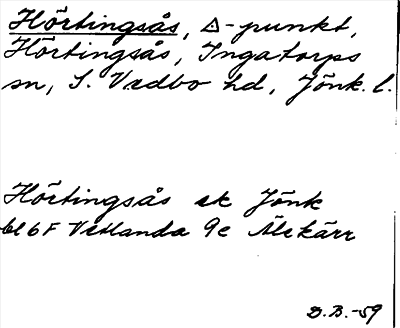 Hörtingsås, △-punkt,
Hörtingsås, Ingatorps
sn, S. Vedbo hd, Jönk. l.
Hörtingsås ek Jönk
bl 6F Vetlanda 9e Älekärr
B.B.-59